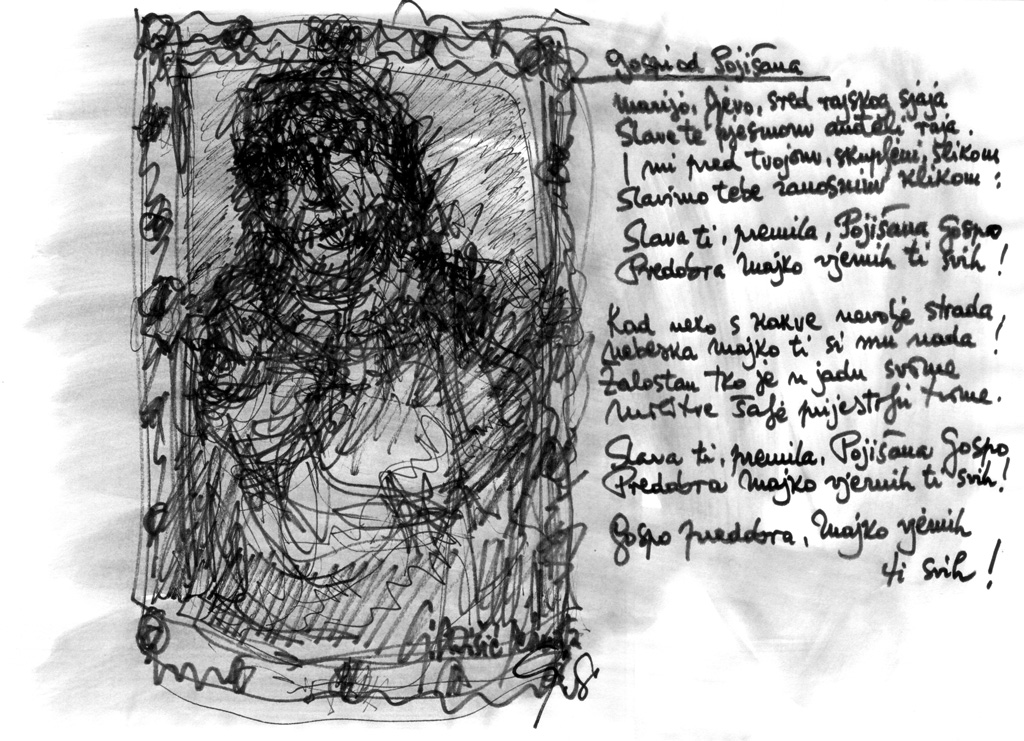 Gospi od Pojišana
Marijo, Djevo, sred rajskog sjaja
Slave te pjesmom anđeli raja.
I mi pred tvojom, skupljeni, slikom
Slavimo tebe zanosnim klikom:
Slava ti, premila, Pojišana Gospo,
Predobra Majko vjernih ti svih!
Kad neko s kakve nevolje strada,
nebeska Majko ti si mu nada!
Žalostan tko je u jadu svome
Molitve šalje prijestolju tvome.
Slava ti, premila, Pojišana Gospo,
Predobra Majko vjernih ti svih!
Gospo preddobra, Majko vjernih
ti svih!